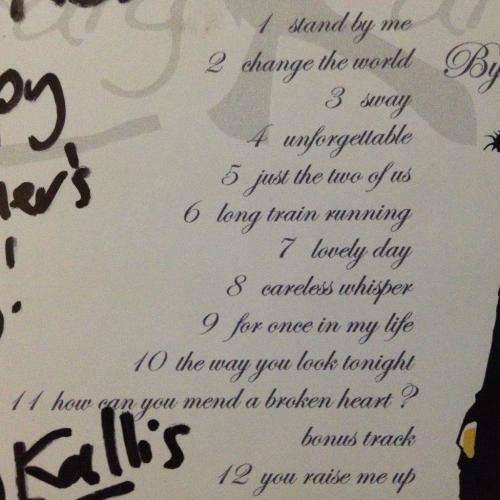 1 stand by me
2 change the world
By
3 sway
4 unforgettable
5 just the two of us
6 long train running
7 lovely day
8 careless whisper
9 for once in my life
10 the way you look tonight
11 how can you mend a broken heart ?
Kallis
bonus track
12 you raise me up